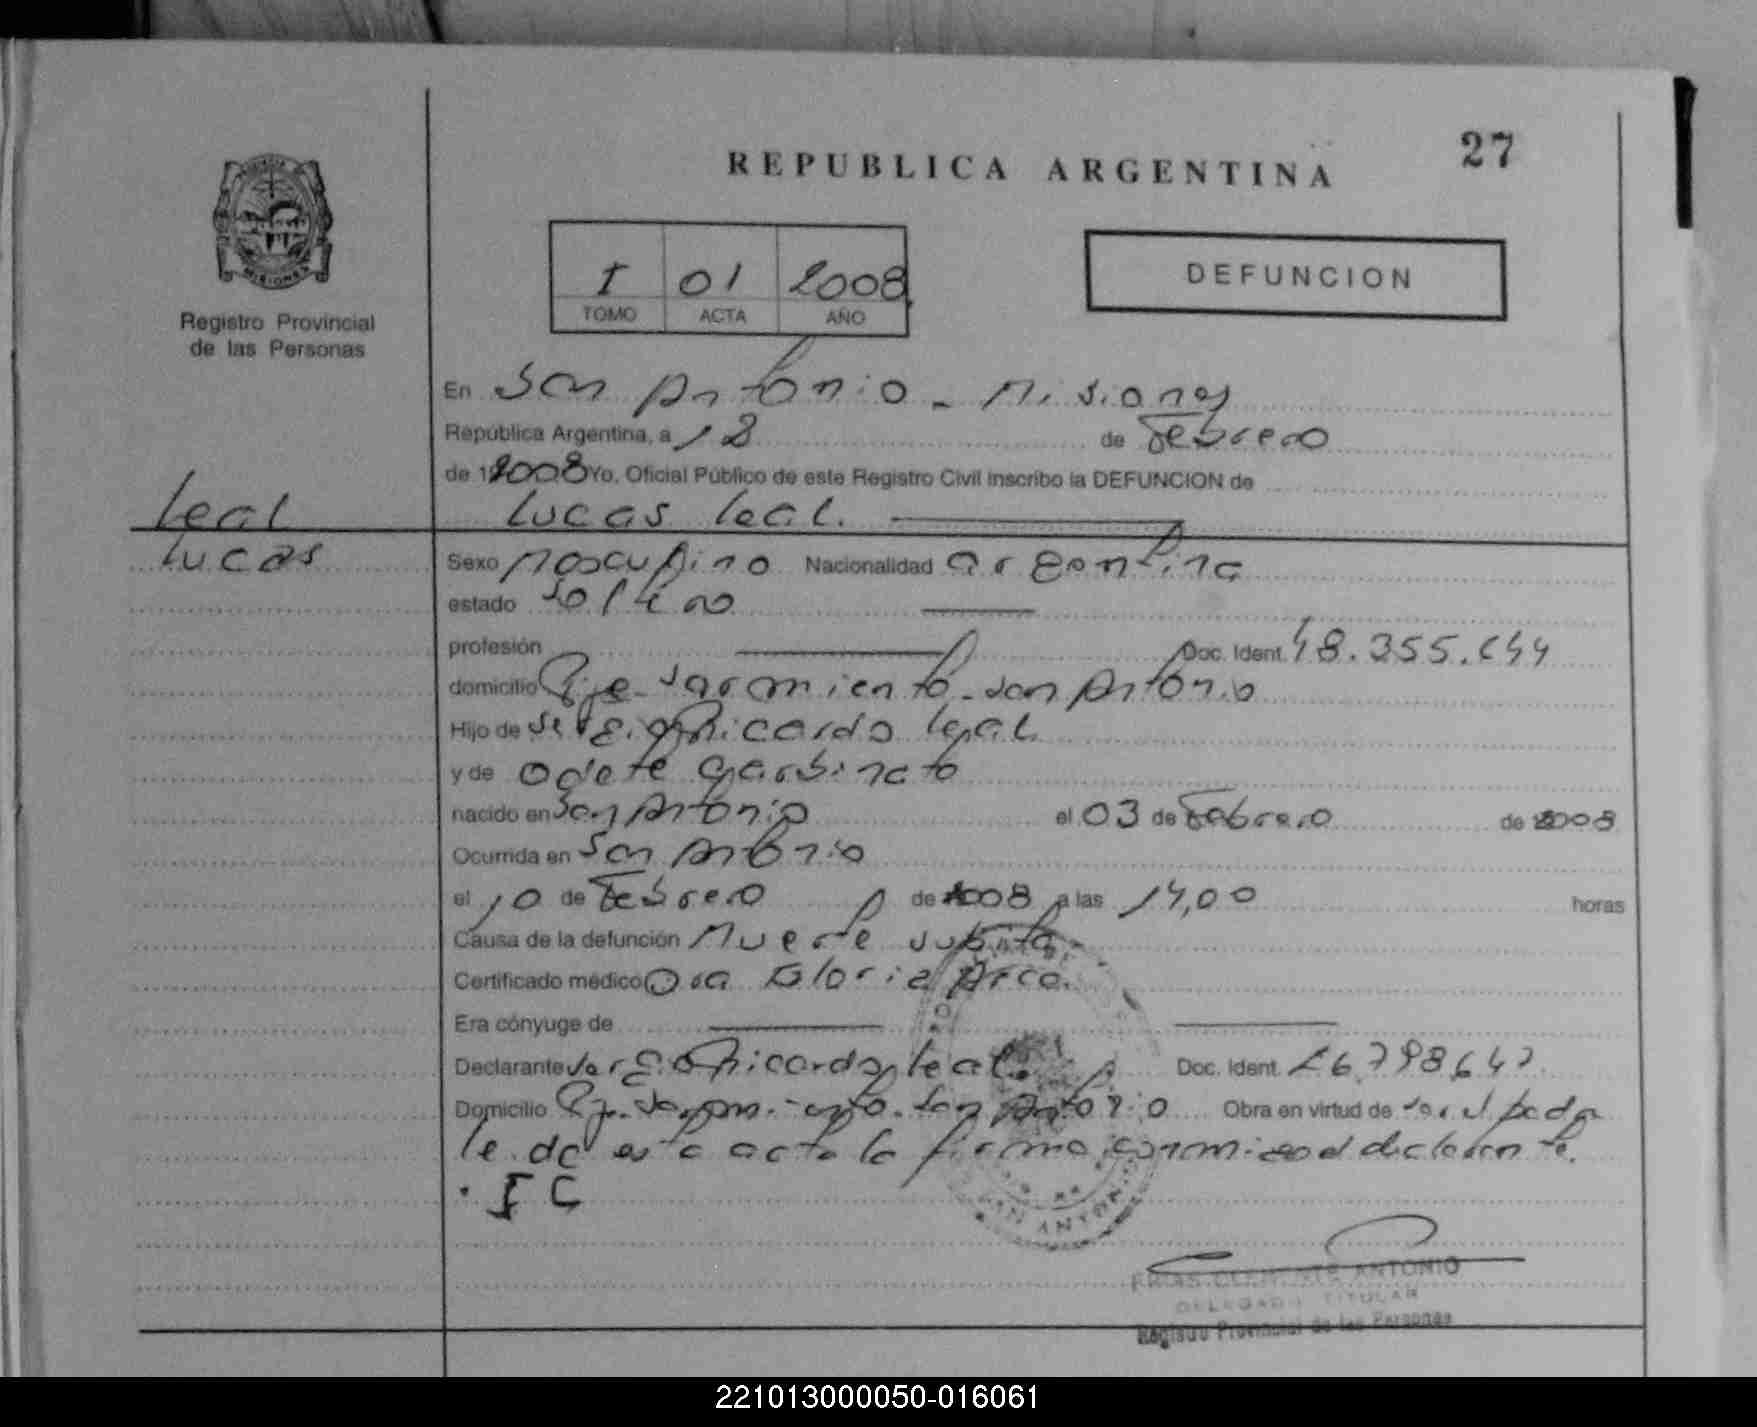 27
REPUBLICA ARGENTINA
MISIONES
Registro Provincial
de las Personas
I 01 2008
TOMO ACTA AÑO
DEFUNCION
En San Antonio - Misiones
República Argentina, a 12 de Febrero
de 2008 Yo, Oficial Público de este Registro Civil inscribo la DEFUNCION de
Leal
Lucas Leal.
Lucas
Sexo Masculino Nacionalidad argentina
estado Soltero
profesión Doc. Ident. 48.355.644
domicilio Pje Sarmiento - San Antonio
Hijo de Sergio Ricardo Leal
y de Odete Garbinato
nacido en San Antonio el 03 de Febrero de 2008
Ocurrida en San Antonio
el 10 de Febrero de 2008 a las 14,00 horas
Causa de la defunción Muerte subita
Certificado médico Dra Gloria Arce.
Era cónyuge de
Declarante Sergio Ricardo Leal. Doc. Ident. 26.798.647
Domicilio Pje. Sarmiento - San Antonio Obra en virtud de ser el padre
leida esta acta la firma conmigo el declarante.
SAN ANTONIO
FRIAS CLEMENTE ANTONIO
DELEGADO TITULAR
Registro Provincial de las Personas
221013000050-016061